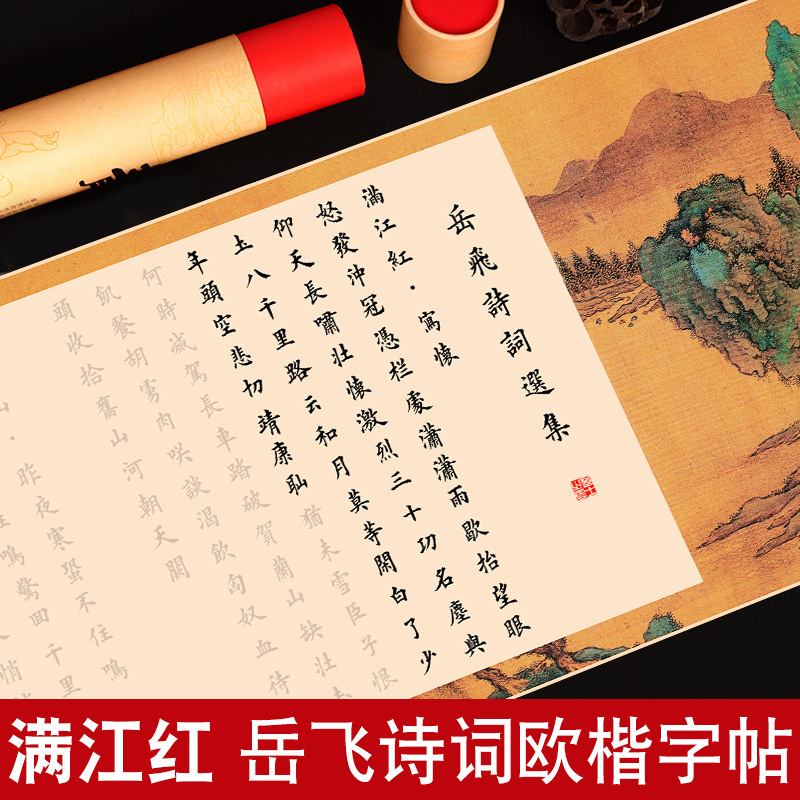 岳飛詩詞選集
满江紅·寫懷
怒發沖冠憑栏處瀟瀟雨歇抬望眼
仰天長嘯壯懷激烈三十功名塵與
土八千里路云和月莫等閑白了少
年頭空悲切靖康耻猶未雪臣子恨
何時滅駕長車路破賀蘭山缺壯
飢餐胡虜肉咲談渴飲匈奴血待
頭收拾舊山河朝天闕
山·昨夜寒蛩不住鳴
鳴驚回千里
人悄
满江红 岳飞诗词欧楷字帖